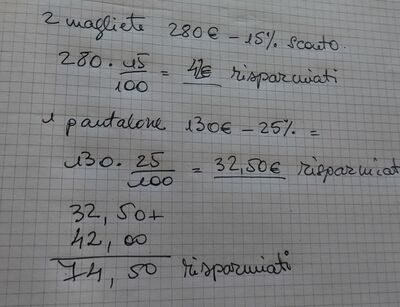 2 magliete 280€ - 15% sconto.
280 · 15/100 = 42€ risparmiati
1 pantalone 130€ - 25% =
130 · 25/100 = 32,50€ risparmiat
32,50+
42,00
74,50 risparmiati